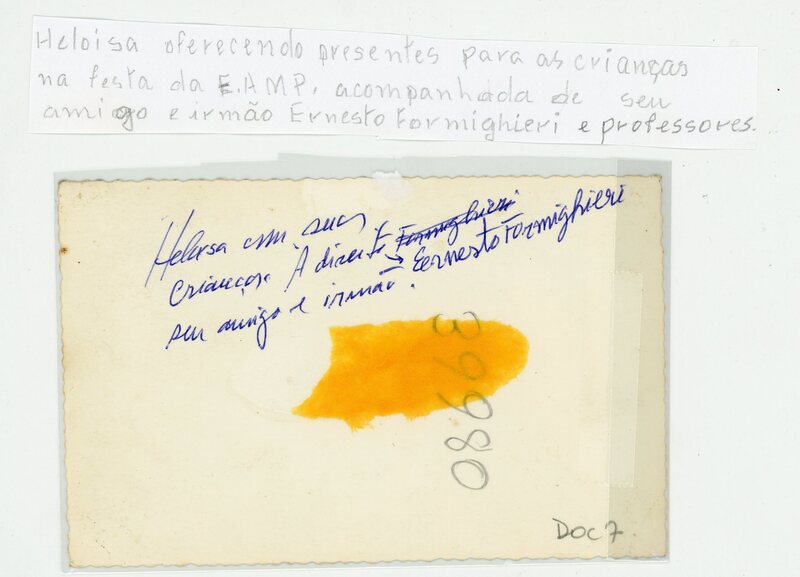 Heloisa oferecendo presentes para as crianças
na festa da E.AMP. acompanhada de seu
amigo e irmão Ernesto Formighieri e professores.
Heloisa com suas
crianças. À direita Formighieri
seu amigo e irmão. → Eernesto Formighieri
39980
Doc 7.